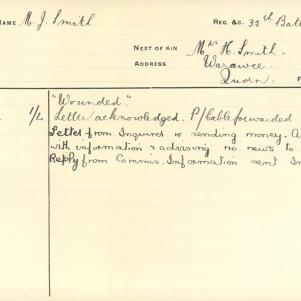 NAME M. J. Smith REG. &C. 33th Batt
NEXT OF KIN Mrs H. Smith.
ADDRESS Warawee
Quorn
"Wounded."
1/L Letter acknowledged. P/Cable forwarded
Letter from Inquirer re sending money. A
with information & advising no news to
Reply from Commis. Information sent In